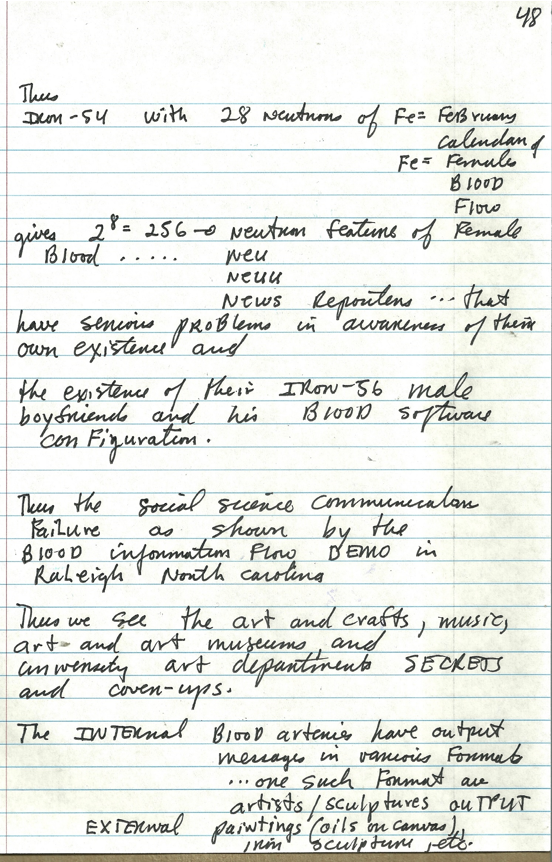 48
Thus
Iron-54 with 28 neutrons of Fe = FeBruary
calendar of
Fe = Females
BlOOD
Flow
gives 2^8 = 256 → neutron features of Female
Blood ...... neu
neuu
News Reporters ... that
have serious pROBlems in awareness of their
own existence and
the existence of their IRon-56 male
boyfriends and his BlOOD software
con Figuration.
Thus the social science communication
Failure as shown by the
BlOOD information Flow DEMO in
Raleigh North carolina
Thus we see the art and crafts, music,
art and art museums, and
university art departments SECRETS
and cover-ups.
The INTERNAl BlOOD arteries have output
messages in various Formats
... one such Format are
artists/sculptures ouTPUT
EXTERNAl paintings (oils on canvas),
iron sculpture, etc.